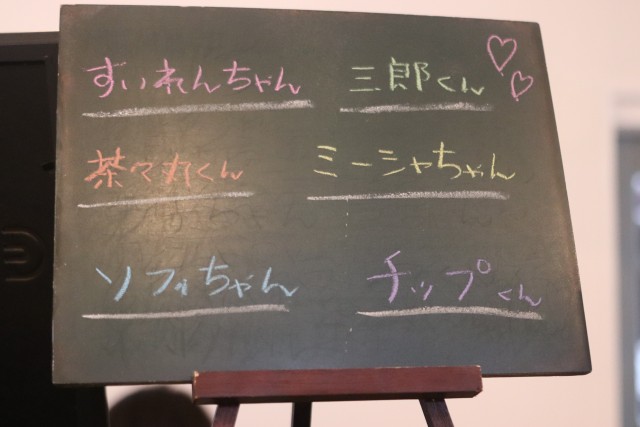 すいれんちゃん 三郎くん
茶々丸くん ミーシャちゃん
ソフィちゃん チップくん